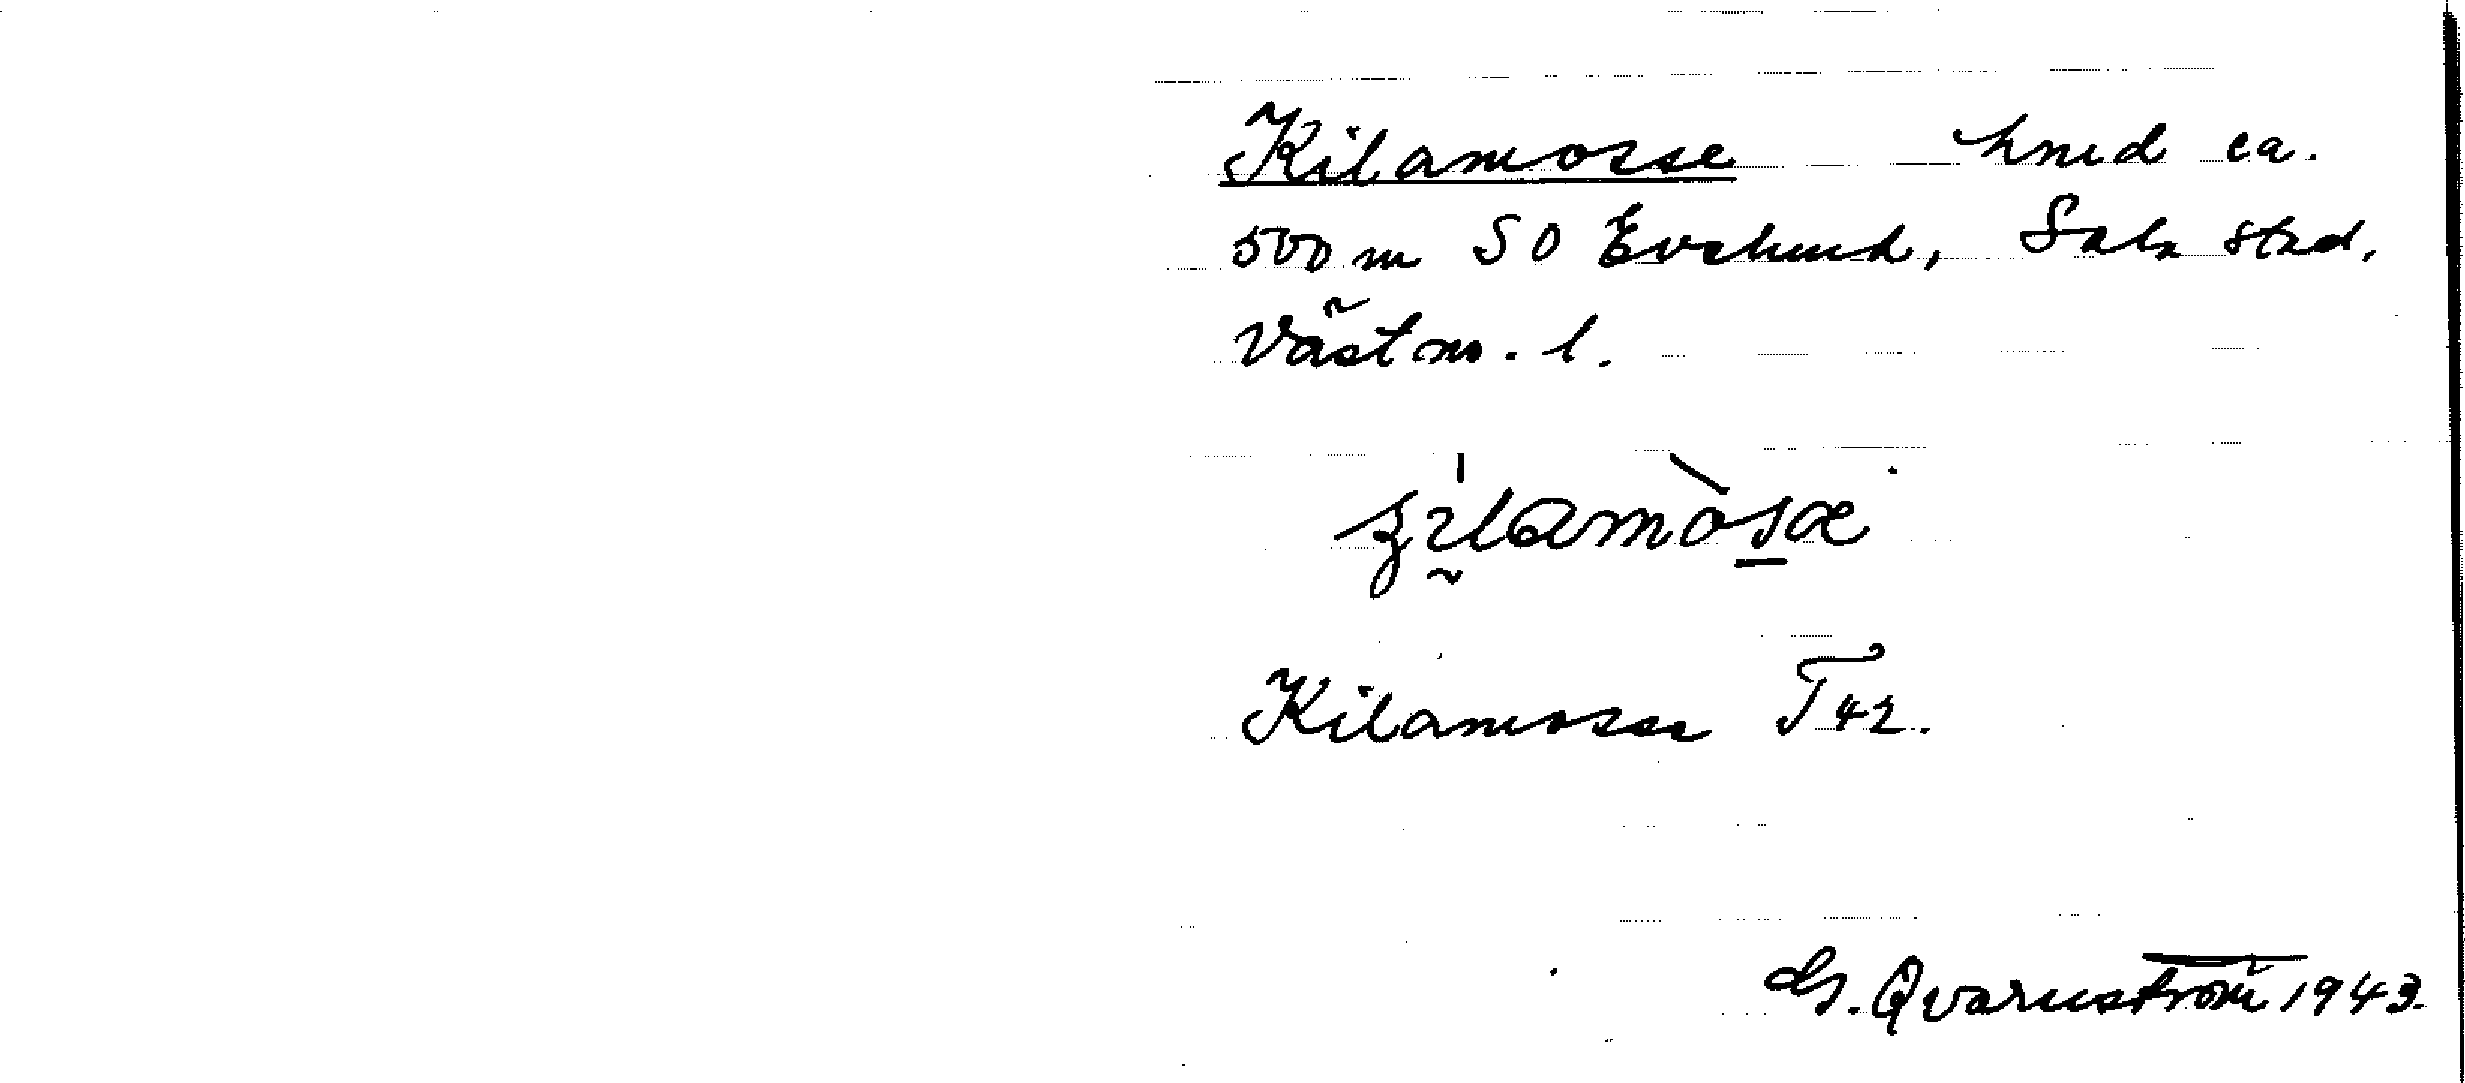 Kilamosse hmd ca.
500 m SO Evelund, Sala stad,
Västm. l.
Kilamosse T42.
G. Qvarnström 1943.